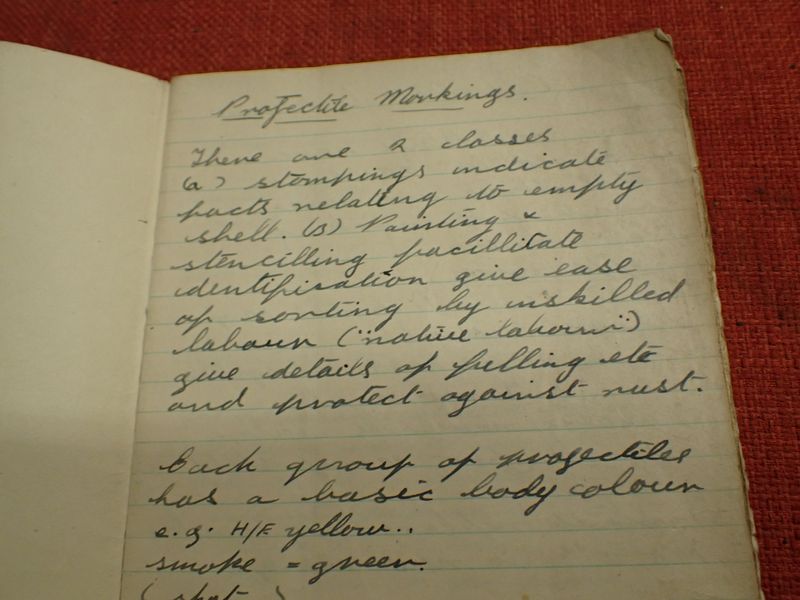 Projectile Markings.
There are 2 classes
(a) stampings indicate
facts relating to empty
shell. (B) Painting &
stencilling facillitate
identification give ease
of sorting by unskilled
labour ("native labour")
give details of filling etc
and protect against rust.
Each group of projectiles
has a basic body colour
e.g. H/E yellow..
smoke = green.
(shot )